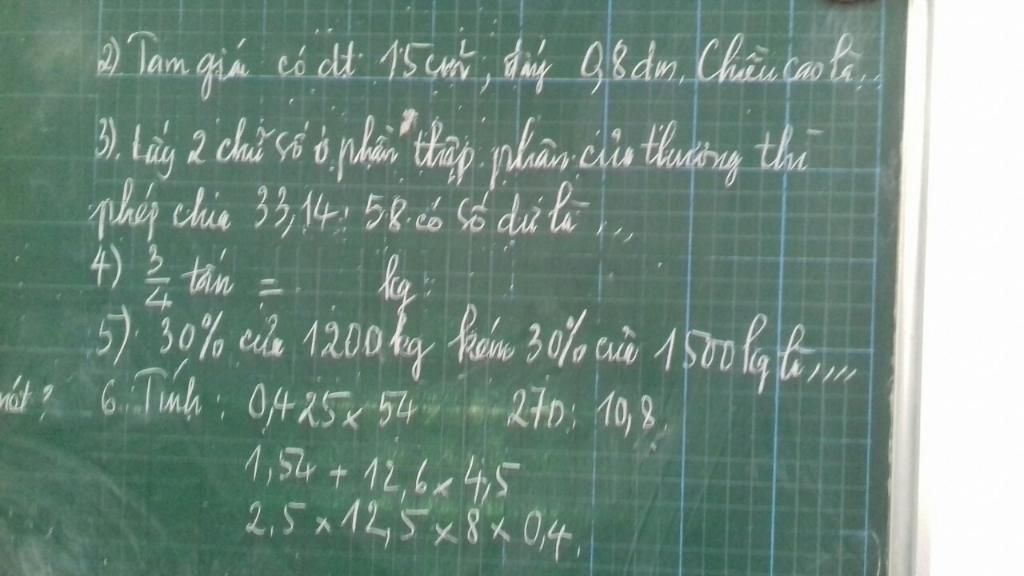 2) Tam giác có dt 15cm², đáy 0,8dm. Chiều cao là...
3). Lấy 2 chữ số ở phần thập phân của thương thì
phép chia 33,14 : 58 có số dư là ...
4) 3/4 tấn = kg.
5) 30% của 1200kg kém 30% của 1500kg là....
6. Tính: 0,425 x 54 270 : 10,8
1,54 + 12,6 x 4,5
2,5 x 12,5 x 8 x 0,4.